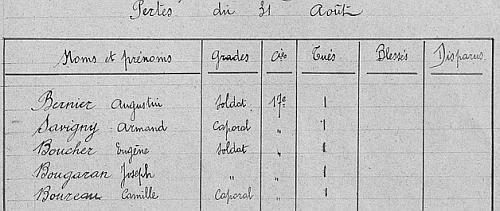 Pertes du 31 Août
Noms et prénoms Grades Cie Tués Blessés Disparus
Bernier Augustin Soldat 17e 1
Savigny Armand Caporal " 1
Boucher Eugène Soldat " 1
Bougaran Joseph " " 1
Boureau Camille Caporal " 1